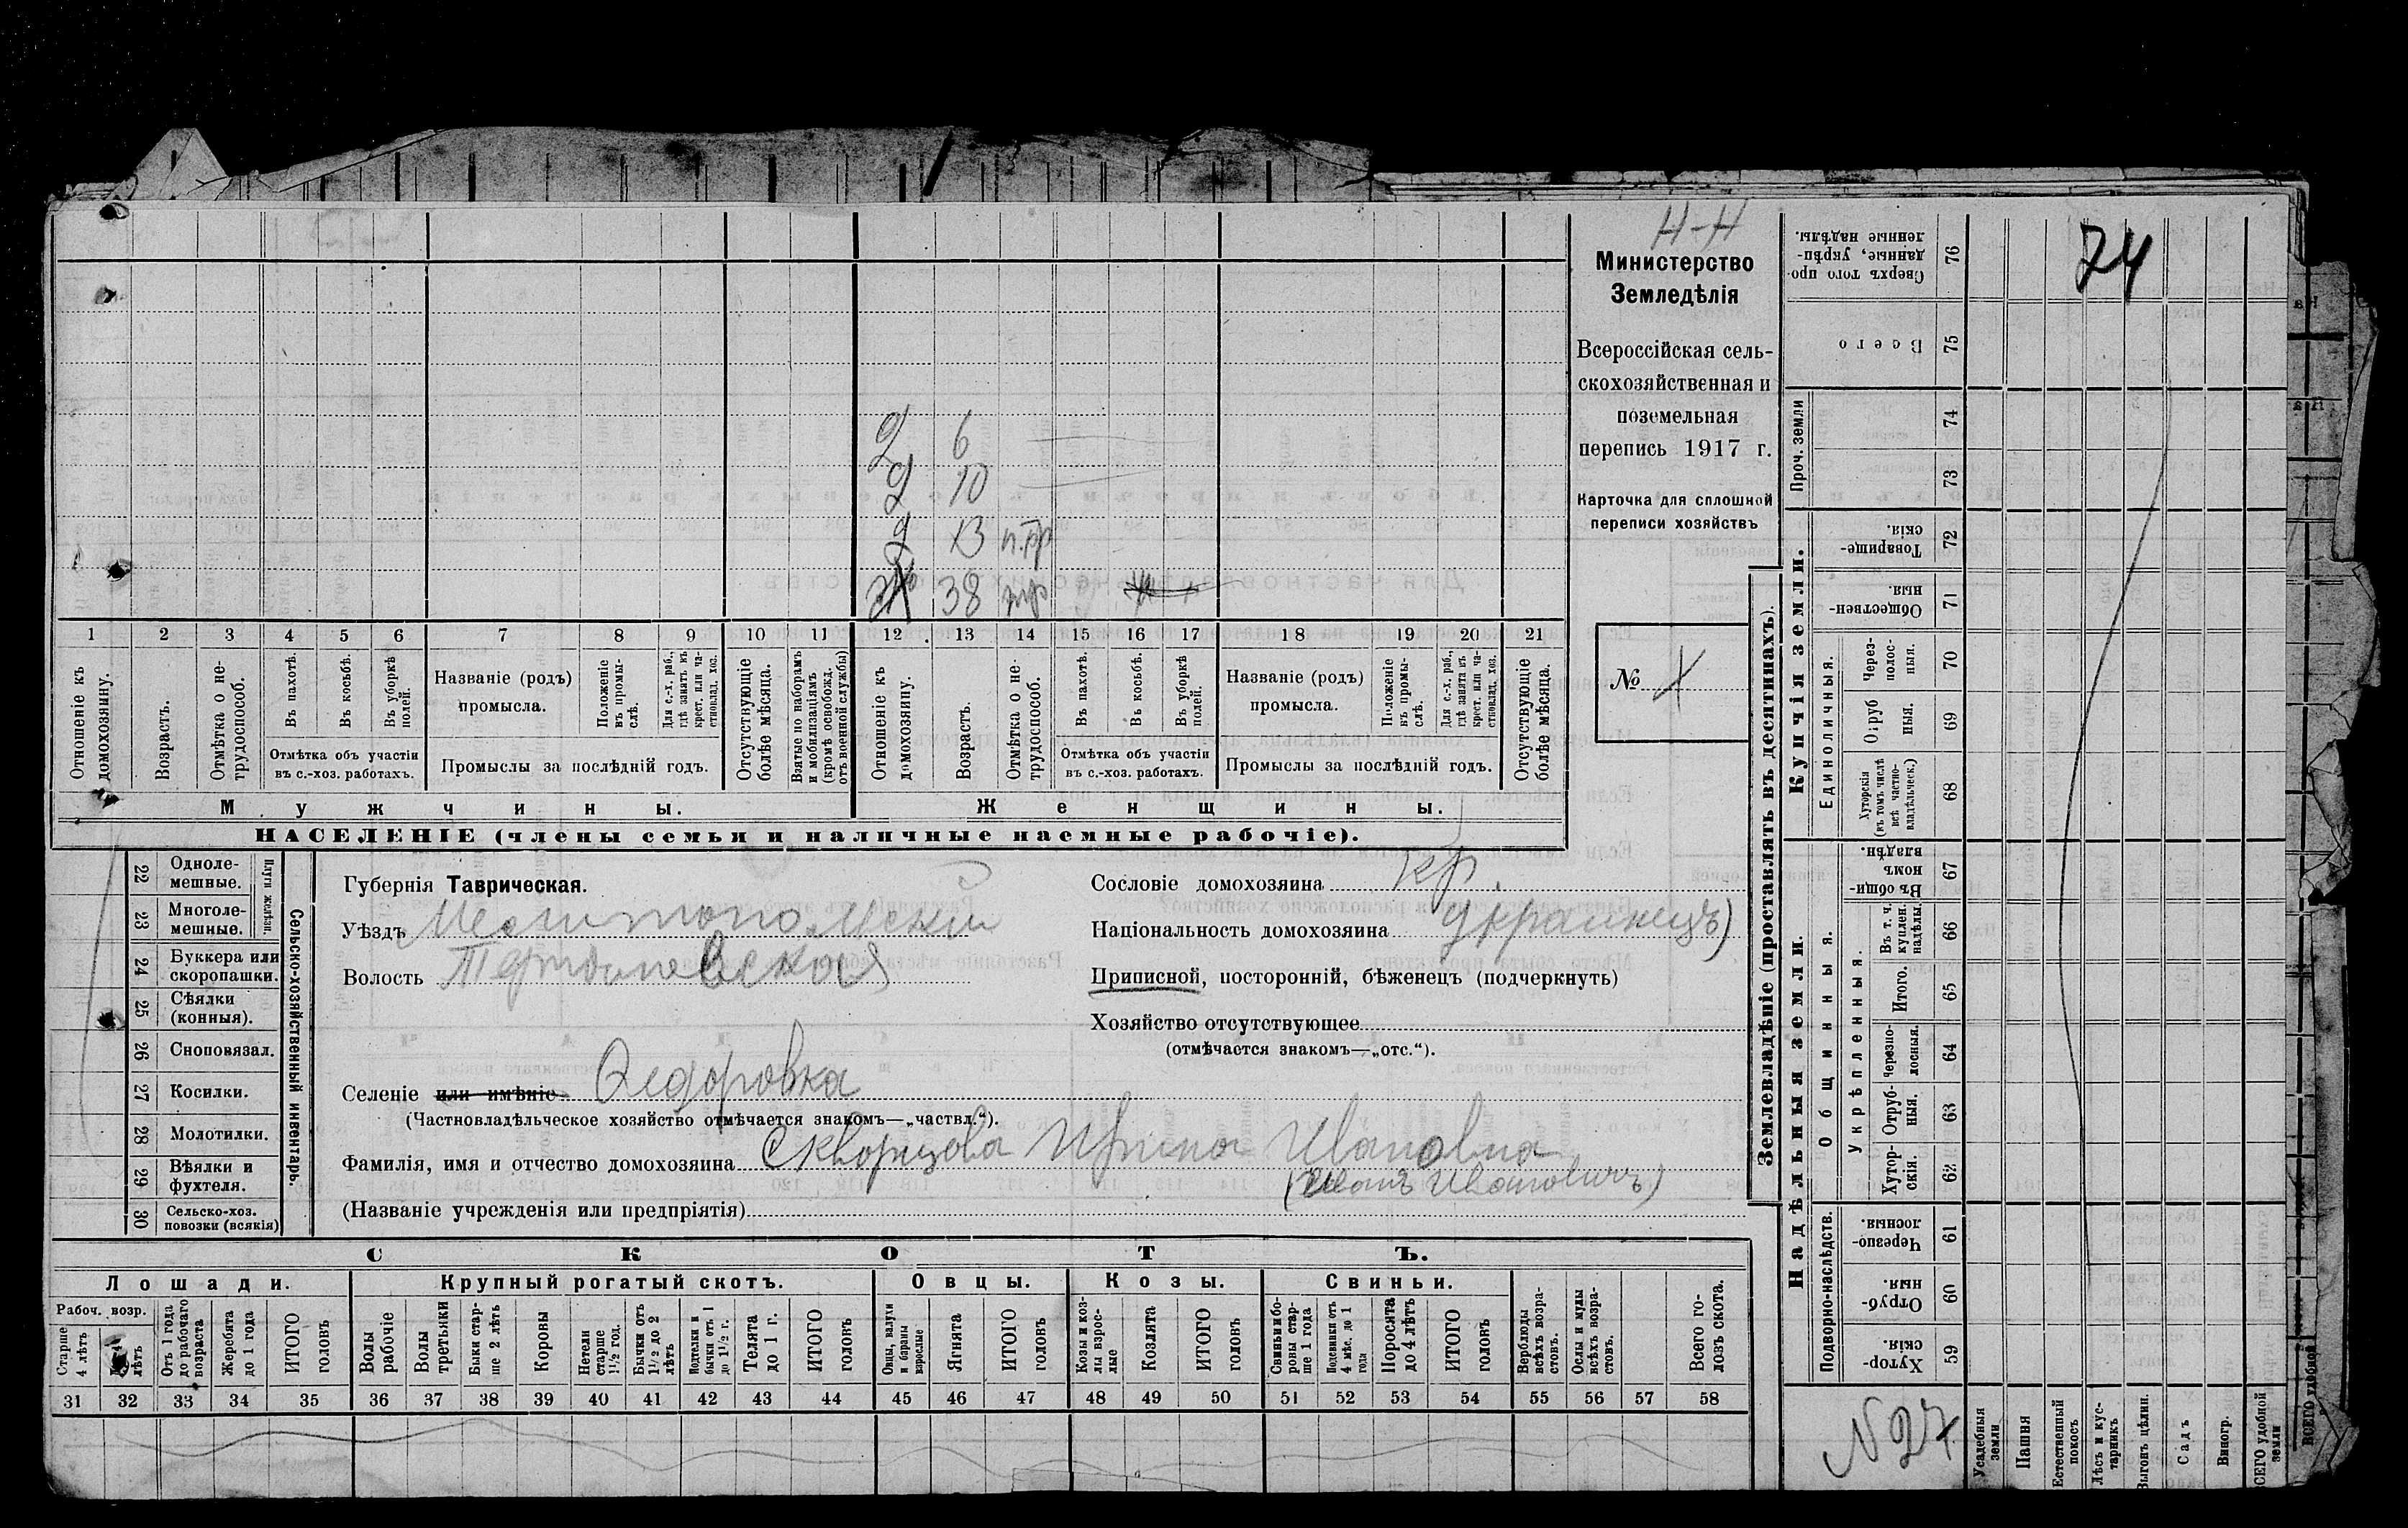 Н-Н
74
Министерство
Земледѣлія
Всероссійская сель-
скохозяйственная и
поземельная
перепись 1917 г.
Карточка для сплошной
переписи хозяйствъ
№
Д 6
Д 10
Д 13 п.тр
38 тр
1 2 3 4 5 6 7 8 9 10 11 12 13 14 15 16 17 18 19 20 21
Отношеніе къ домохозяину.
Возрастъ.
Отмѣтка о не-трудоспособ.
Въ пахотѣ.
Въ косьбѣ.
Въ уборкѣ полей.
Отмѣтка объ участіи
въ с.-хоз. работахъ.
Названіе (родъ)
промысла.
Положеніе въ промы-слѣ.
Для с.-х. раб., гдѣ занятъ въ крест. или ча-стновлад. хоз.
Промыслы за послѣдній годъ.
Отсутствующіе болѣе мѣсяца.
Взятые по наборамъ и мобилизаціямъ (кромѣ освобожд. отъ военной службы)
Отношеніе къ домохозяину.
Возрастъ.
Отмѣтка о не-трудоспособ.
Въ пахотѣ.
Въ косьбѣ.
Въ уборкѣ полей.
Отмѣтка объ участіи
въ с.-хоз. работахъ.
Названіе (родъ)
промысла.
Положеніе въ промы-слѣ.
Для с.-х. раб., гдѣ занята въ крест. или ча-стновлад. хоз.
Промыслы за послѣдній годъ.
Отсутствующіе болѣе мѣсяца.
Мужчины. Женщины.
НАСЕЛЕНІЕ (члены семьи и наличные наемные рабочіе).
22 Одноле-мешные.
23 Многоле-мешные.
Плуги желѣзн.
24 Буккера или скоропашки.
25 Сѣялки (конныя).
26 Сноповязал.
27 Косилки.
28 Молотилки.
29 Вѣялки и фухтеля.
30 Сельско-хоз. повозки (всякія)
Сельско-хозяйственный инвентарь.
Губернія Таврическая.
Уѣздъ Мелитопольскій
Волость
Селеніе или имѣніе Федоровка
(Частновладѣльческое хозяйство отмѣчается знакомъ—„частвл.“).
Фамилія, имя и отчество домохозяина Скворцова Ирина Ивановна
(Иванъ Ивановичъ)
(Названіе учрежденія или предпріятія)
Сословіе домохозяина кр.
Національность домохозяина украинецъ)
Приписной, посторонній, бѣженецъ (подчеркнуть)
Хозяйство отсутствующее
(отмѣчается знакомъ—„отс.“).
СКОТЪ.
Лошади. Крупный рогатый скотъ. Овцы. Козы. Свиньи.
Рабоч. возр.
Старше 4 лѣтъ
лѣтъ
Отъ 1 года до рабочаго возраста
Жеребята до 1 года
ИТОГО головъ
Волы рабочіе
Волы третьяки
Быки стар-ше 2 лѣтъ
Коровы
Нетели старше 1½ год.
Бычки отъ 1½ до 2 лѣтъ
Подтелки и бычки отъ 1 до 1½ г.
Телята до 1 г.
ИТОГО головъ
Овцы, валухи и бараны взрослые
Ягнята
ИТОГО головъ
Козы и коз-лы взрос-лые
Козлята
ИТОГО головъ
Свиньи и бо-ровы стар-ше 1 года
Подсвинки отъ 4 мѣс. до 1 года
Поросята до 4 лѣтъ
ИТОГО головъ
Верблюды всѣхъ возра-стовъ.
Ослы и мулы всѣхъ возра-стовъ.
Всего го-ловъ скота.
31 32 33 34 35 36 37 38 39 40 41 42 43 44 45 46 47 48 49 50 51 52 53 54 55 56 57 58
Землевладѣніе (проставлять въ десятинахъ).
Купчія земли.
Надѣльныя земли.
Сверхъ того про-данные, укрѣп-ленные надѣлы. 76
Всего 75
Проч. земли 74
73
Товарище-скія. 72
Обществен-ныя. 71
Единоличныя.
Через-полос-ныя. 70
Отруб-ныя. 69
Хуторскія (въ томъ числѣ всѣ частно-владѣльческ.) 68
Общинныя.
Въ общин-номъ владѣн. 67
Укрѣпленныя.
Въ т. ч. куплен. надѣлы. 66
Итого. 65
Черезпо-лосныя. 64
Отруб-ныя. 63
Хутор-скія. 62
Подворно-наслѣдств.
Черезпо-лосныя. 61
Отруб-ныя. 60
Хутор-скія. 59
N 27
Усадебныя земли
Пашня
Естественный покосъ
Лѣсъ и кус-тарникъ
Выгонъ цѣлин.
Садъ
Виногр.
ВСЕГО удобной земли